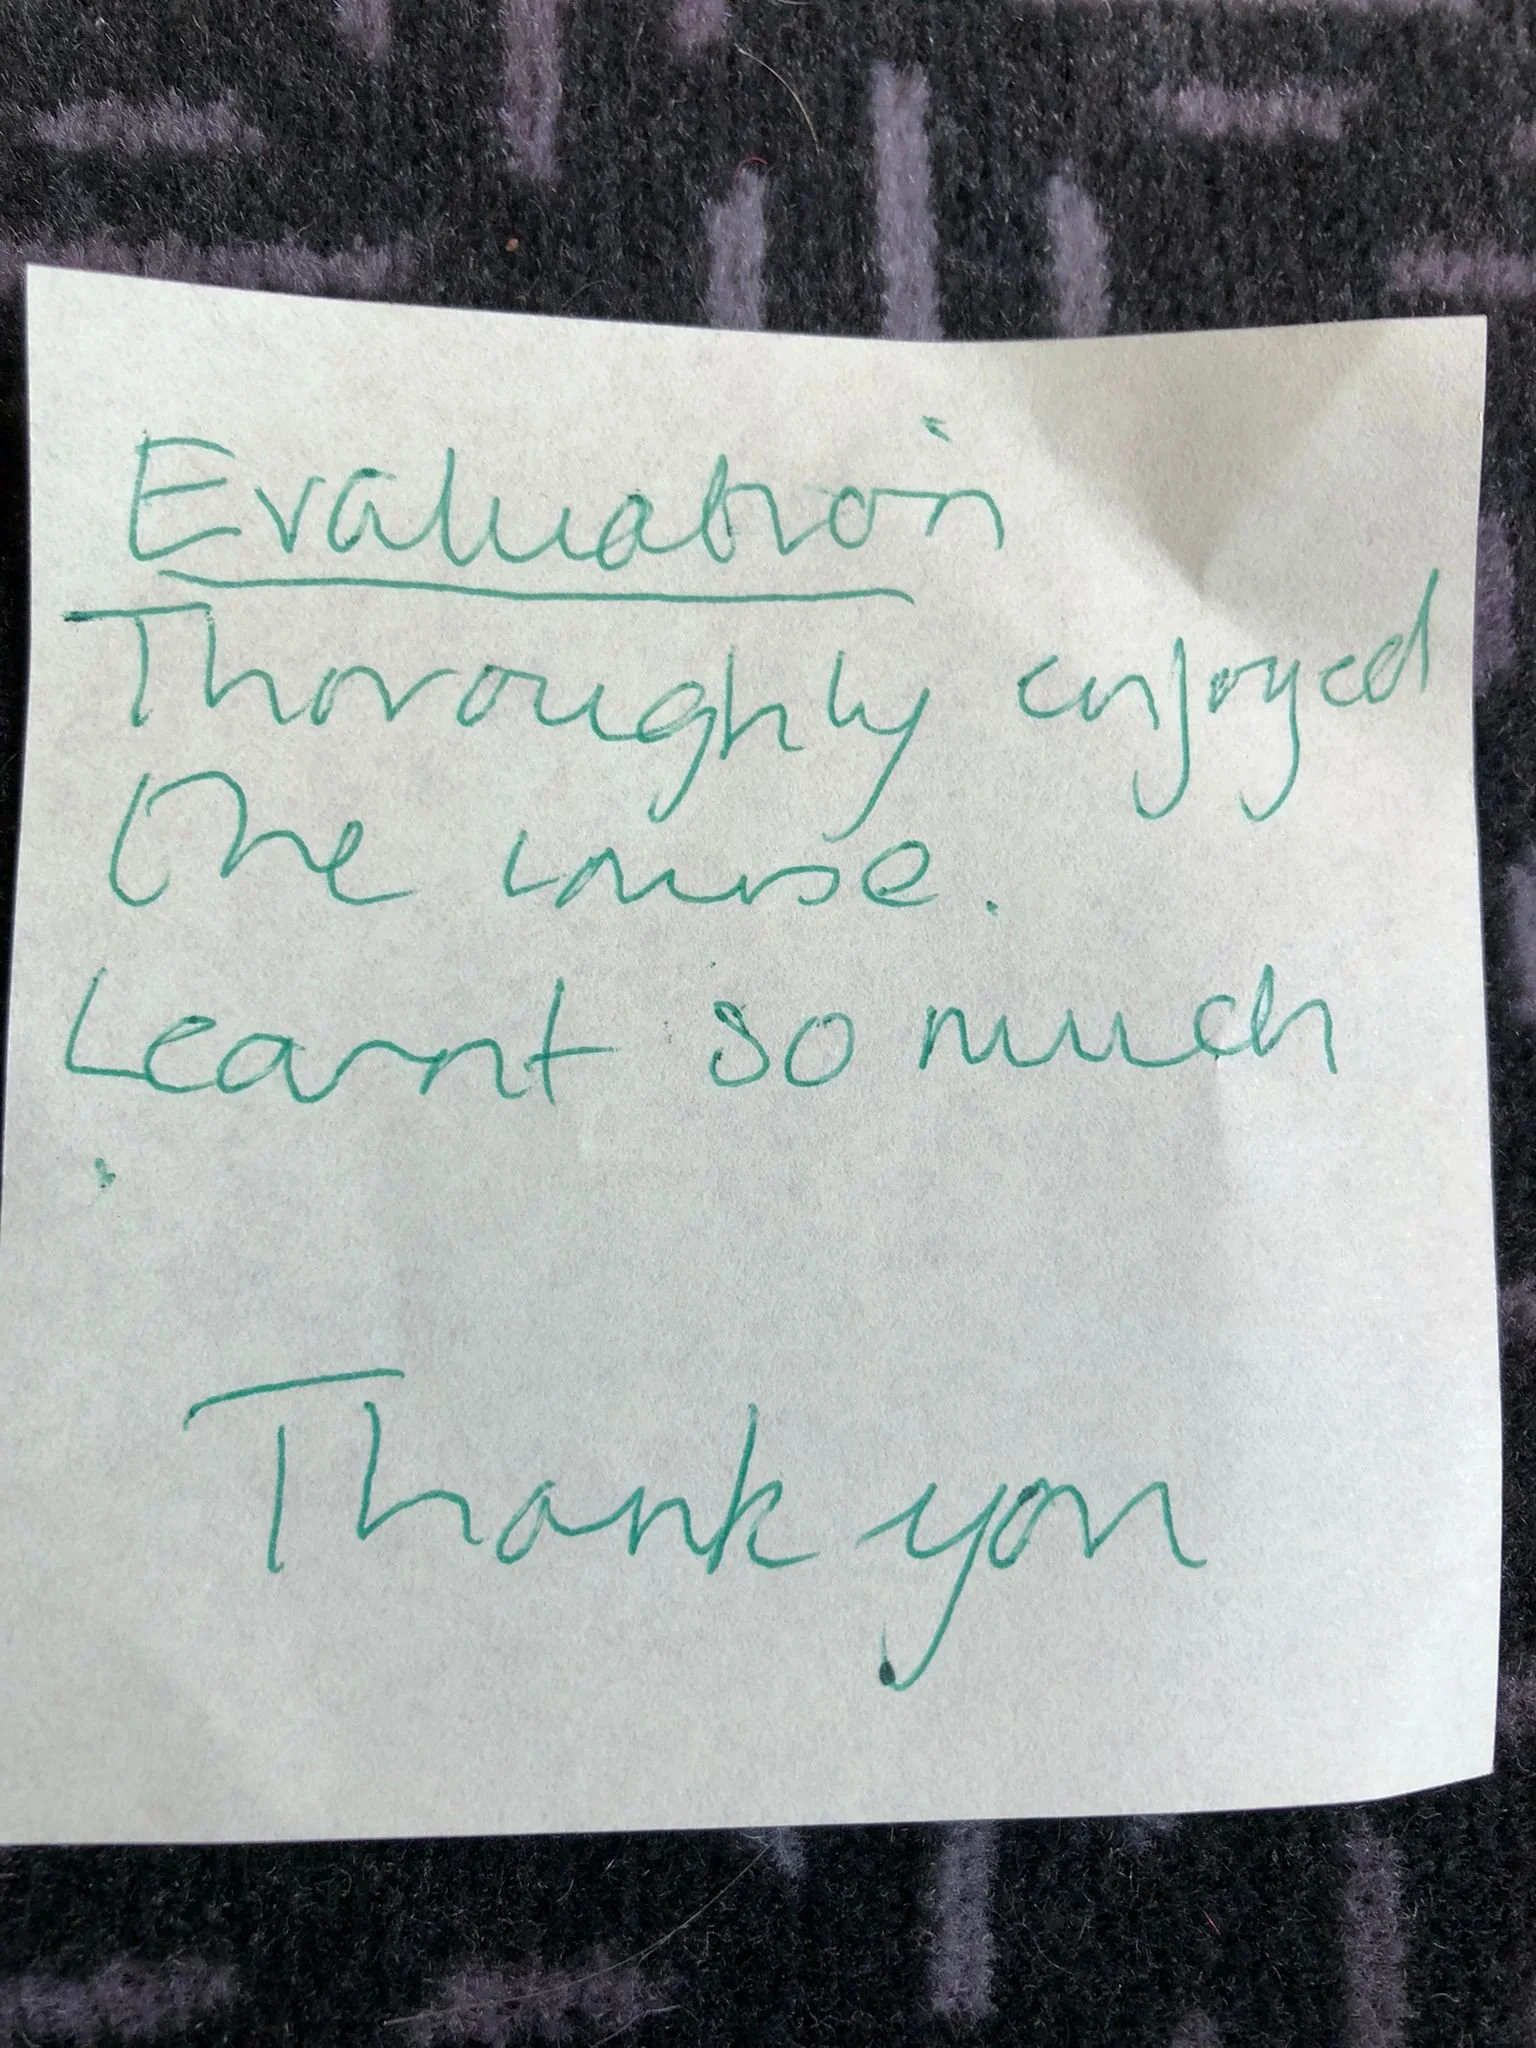 Evaluation
Thoroughly enjoyed
the course.
Learnt so much
.
Thank you